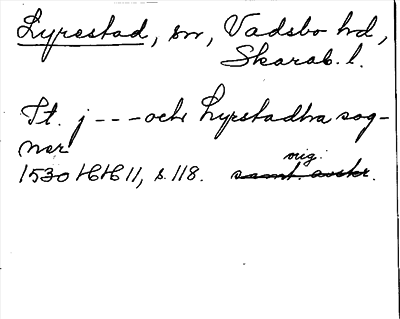 Lyrestad, sn, Vadsbo hd,
Skarab. l.
It. j --- och Lyrstadha sog-
ner
orig.
1530 HH 11, s. 118. samt. avskr.